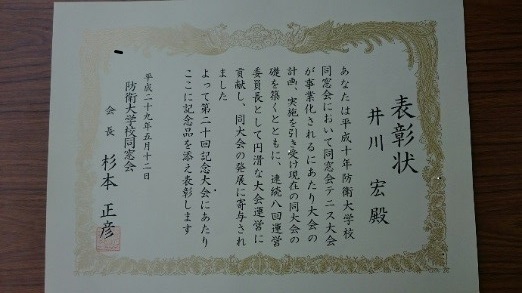 表彰状
井川 宏 殿
あなたは平成十年防衛大学校
同窓会において同窓会テニス大会
が事業化されるにあたり大会の
計画、実施を引き受け現在の同大会の
礎を築くとともに、連続八回運営
委員長として円滑な大会運営に
貢献し、同大会の発展に寄与され
ました
よって第二十回記念大会にあたり
ここに記念品を添え表彰します
平成二十九年五月十二日
防衛大学校同窓会
会長 杉本 正彦